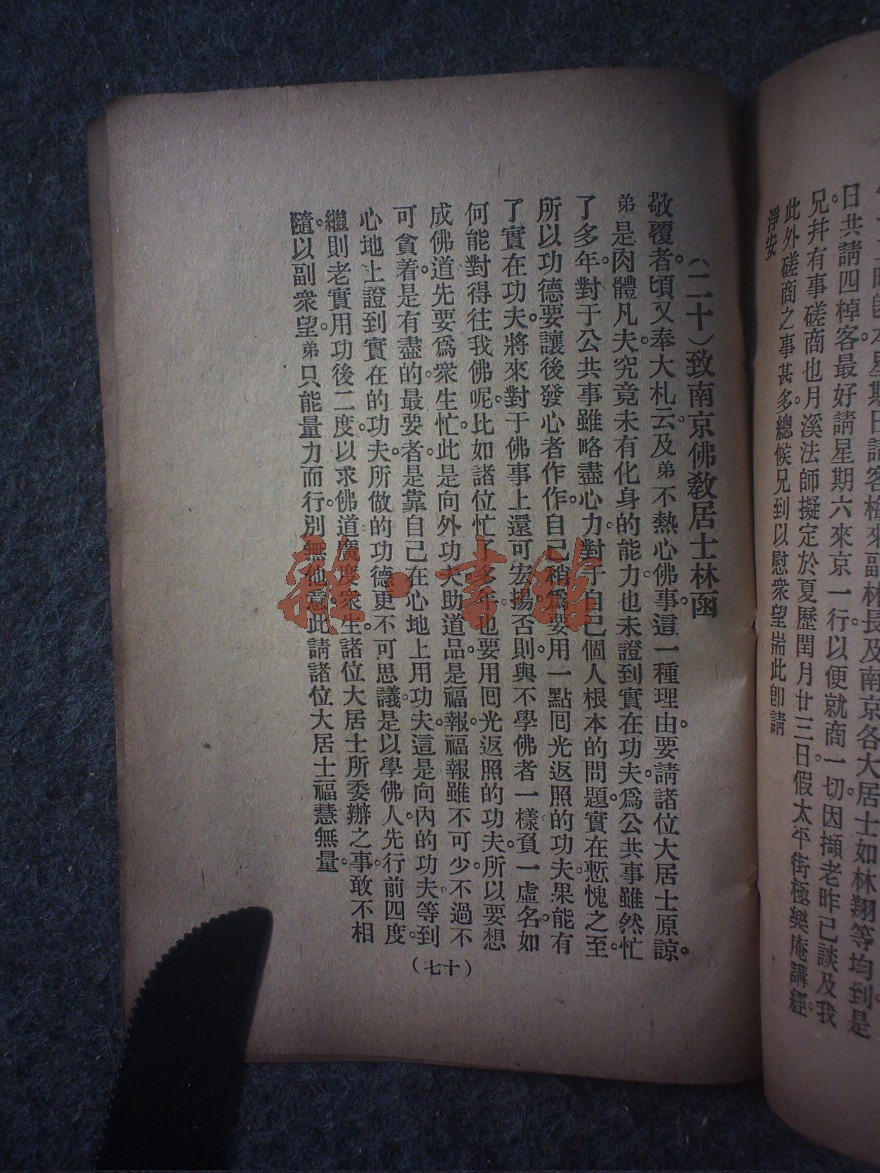 日共請四棹客最好請星期六來京一行以便就商一切因擷老昨已談及我
兄幷有事磋商也月溪法師擬定於夏歷閏月廿三日假太平街極樂庵講經
此外磋商之事甚多總候兄到以慰衆望耑此卽請
淨安
(二十)致南京佛敎居士林函
敬覆者。頃又奉大札云及弟不熱心佛事。這一種理由。要請諸位大居士原諒。
弟是肉體凡夫究竟未有化身的能力也未證到實在功夫。爲公共事雖然忙
了多年。對于公共事雖略盡心力。對于自己個人根本的問題實在慙愧之至。
所以功德要讓後發心者作作。自己稍爲要用一點囘光返照的功夫。果能有
了實在功夫。將來對于佛事上還可宏揚。否則與不學佛者一樣。負一虛名。如
何能對得往我佛呢。比如諸位忙了多年。也要用囘光返照的功夫。所以要想
成佛道。先要爲衆生忙。此是向外功夫助道品。是福報。福報雖不可少。不過不
可貪着。是有盡的。最要者是靠自己在心地上用功夫。這是向內的功夫。等到
心地上證到實在的功夫。所做的功德更不可思議。是以學佛人先行前四度。
繼則老實用功後二度。以求佛道廣度衆生。諸位大居士所委辦之事。敢不相
隨。以副衆望。弟只能量力而行。別無他意。此請諸位大居士福慧無量。
(七十)
雜·書館